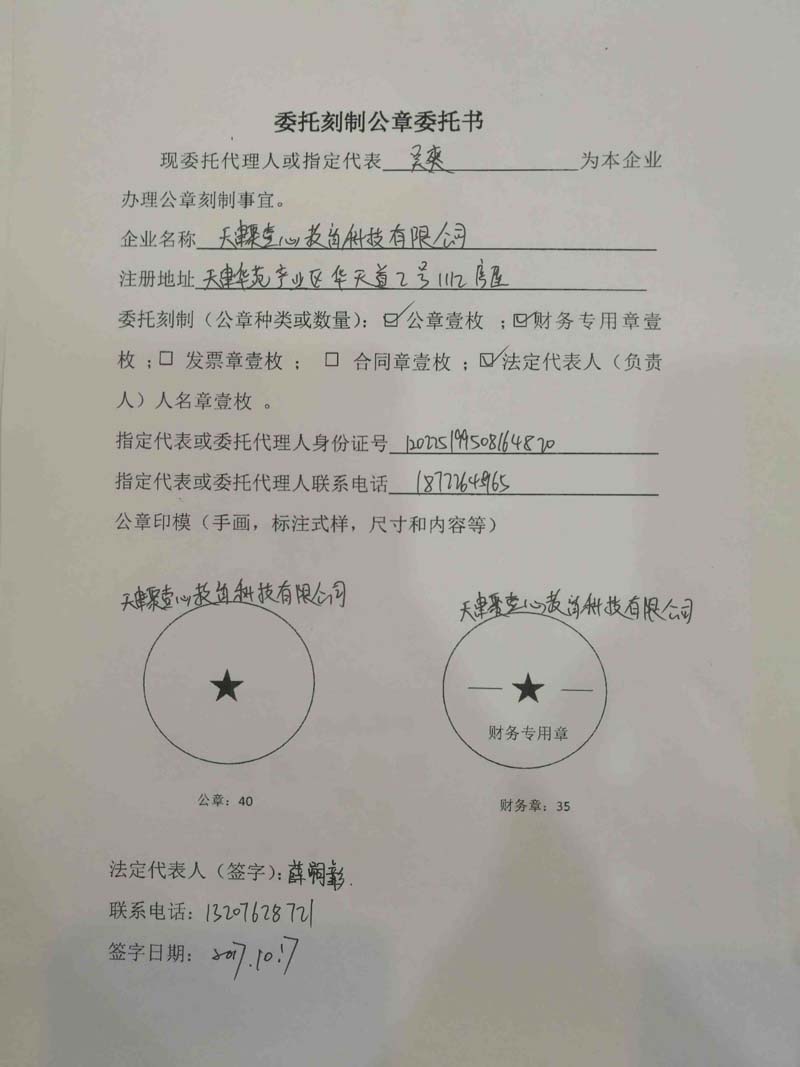 委托刻制公章委托书
现委托代理人或指定代表 吴爽 为本企业
办理公章刻制事宜。
企业名称 天津聚壹心教育科技有限公司
注册地址 天津华苑产业区华天道2号1112房屋
委托刻制（公章种类或数量）：☑公章壹枚 ；☑财务专用章壹
枚 ；☐ 发票章壹枚 ； ☐ 合同章壹枚 ；☑法定代表人（负责
人）人名章壹枚 。
指定代表或委托代理人身份证号 120225199508164820
指定代表或委托代理人联系电话
公章印模（手画，标注式样，尺寸和内容等）
天津聚壹心教育科技有限公司 天津聚壹心教育科技有限公司
财务专用章
公章：40 财务章：35
法定代表人（签字）：薛嗣彰
联系电话：13207628721
签字日期： 2017.10.17